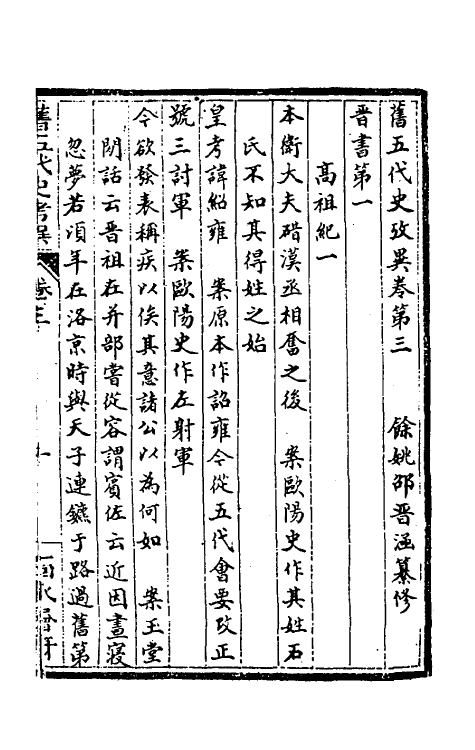 舊五代史攷異卷第三　餘姚邵晉涵纂修
晉書第一
高祖紀一
本衛大夫碏漢丞相奮之後　案歐陽史作其姓石
氏不知其得姓之始
皇考諱紹雍　案原本作詔雍今從五代會要改正
號三討軍　案歐陽史作左射軍
今欲發表稱疾以俟其意諸公以為何如　案玉堂
閒話云晉祖在并部嘗從容謂賓佐云近因晝寢
忽夢若頃年在洛京時與天子連鑣于路過舊第
舊五代史考異　卷三　一